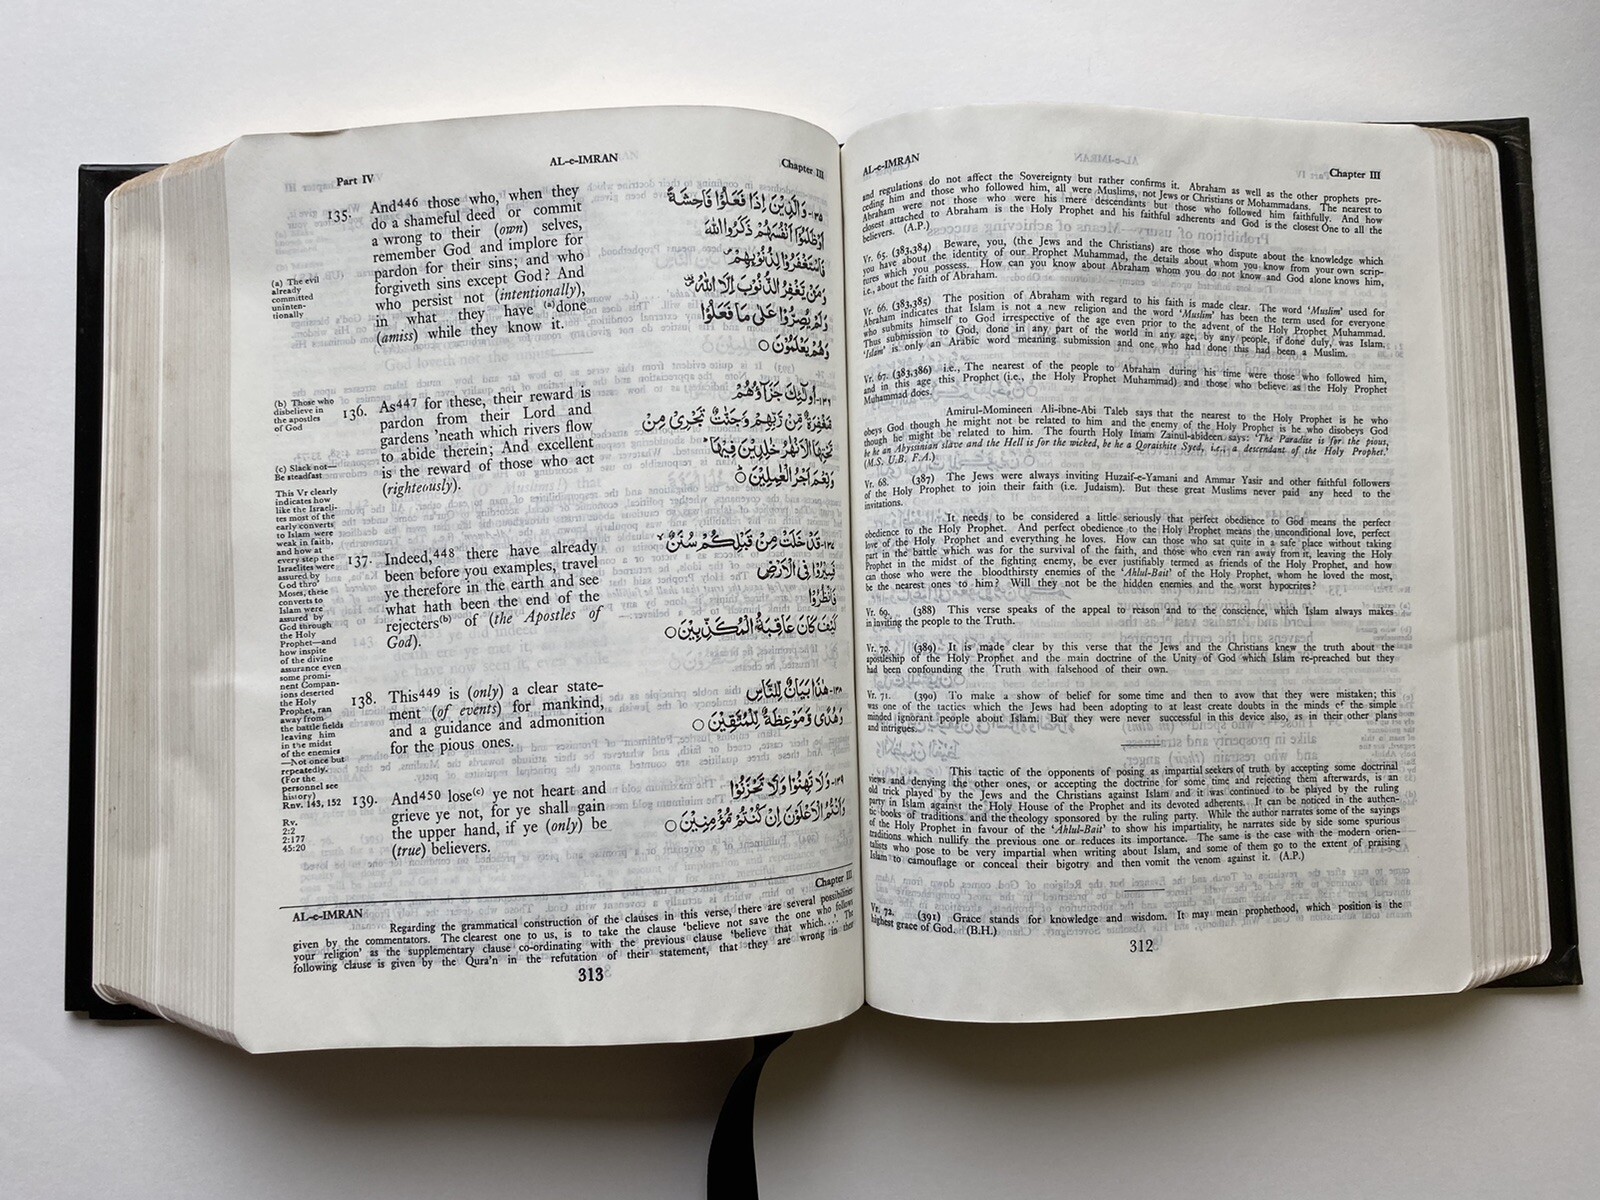 AL-e-IMRAN
Chapter III
and regulations do not affect the Sovereignty but rather confirms it. Abraham as well as the other prophets pre-
ceding him and those who followed him, all were Muslims, not Jews or Christians or Mohammadans. The nearest to
Abraham were not those who were his mere descendants but those who followed him faithfully. And how
closest attached to Abraham is the Holy Prophet and his faithful adherents and God is the closest One to all the
believers. (A.P.)
Vr. 65. (383,384) Beware, you, (the Jews and the Christians) are those who dispute about the knowledge which
you have about the identity of our Prophet Muhammad, the details about whom you know from your own scrip-
tures which you possess. How can you know about Abraham whom you do not know and God alone knows him,
i.e., about the faith of Abraham.
Vr. 66. (383,385) The position of Abraham with regard to his faith is made clear. The word 'Muslim' used for
Abraham indicates that Islam is not a new religion and the word 'Muslim' has been the term used for everyone
who submits himself to God irrespective of the age even prior to the advent of the Holy Prophet Muhammad.
Thus submission to God, done in any part of the world in any age, by any people, if done duly, was Islam.
'Islam' is only an Arabic word meaning submission and one who had done this had been a Muslim.
Vr. 67. (383,386) i.e., The nearest of the people to Abraham during his time were those who followed him,
and in this age this Prophet (i.e., the Holy Prophet Muhammad) and those who believe as the Holy Prophet
Muhammad does.
Amirul-Momineen Ali-ibne-Abi Taleb says that the nearest to the Holy Prophet is he who
obeys God though he might not be related to him and the enemy of the Holy Prophet is he who disobeys God
though he might be related to him. The fourth Holy Imam Zainul-abideen says: 'The Paradise is for the pious,
be he an Abyssinian slave and the Hell is for the wicked, be he a Qoraishite Syed, i.e., a descendant of the Holy Prophet.'
(M.S. U.B. F.A.)
Vr. 68. (387) The Jews were always inviting Huzaif-e-Yamani and Ammar Yasir and other faithful followers
of the Holy Prophet to join their faith (i.e. Judaism). But these great Muslims never paid any heed to the
invitations.
It needs to be considered a little seriously that perfect obedience to God means the perfect
obedience to the Holy Prophet. And perfect obedience to the Holy Prophet means the unconditional love, perfect
love of the Holy Prophet and everything he loves. How can those who sat quite in a safe place without taking
part in the battle which was for the survival of the faith, and those who even ran away from it, leaving the Holy
Prophet in the midst of the fighting enemy, be ever justifiably termed as friends of the Holy Prophet, and how
can those who were the bloodthirsty enemies of the 'Ahlul-Bait' of the Holy Prophet, whom he loved the most,
be the nearest ones to him? Will they not be the hidden enemies and the worst hypocrites?
Vr. 69. (388) This verse speaks of the appeal to reason and to the conscience, which Islam always makes
in inviting the people to the Truth.
Vr. 70. (389) It is made clear by this verse that the Jews and the Christians knew the truth about the
apostleship of the Holy Prophet and the main doctrine of the Unity of God which Islam re-preached but they
had been confounding the Truth with falsehood of their own.
Vr. 71. (390) To make a show of belief for some time and then to avow that they were mistaken; this
was one of the tactics which the Jews had been adopting to at least create doubts in the minds of the simple
minded ignorant people about Islam. But they were never successful in this device also, as in their other plans
and intrigues.
This tactic of the opponents of posing as impartial seekers of truth by accepting some doctrinal
views and denying the other ones, or accepting the doctrine for some time and rejecting them afterwards, is an
old trick played by the Jews and the Christians against Islam and it was continued to be played by the ruling
party in Islam against the Holy House of the Prophet and its devoted adherents. It can be noticed in the authen-
tic books of traditions and the theology sponsored by the ruling party. While the author narrates some of the sayings
of the Holy Prophet in favour of the 'Ahlul-Bait' to show his impartiality, he narrates side by side some spurious
traditions which nullify the previous one or reduces its importance. The same is the case with the modern orien-
talists who pose to be very impartial when writing about Islam, and some of them go to the extent of praising
Islam to camouflage or conceal their bigotry and then vomit the venom against it. (A.P.)
Vr. 72. (391) Grace stands for knowledge and wisdom. It may mean prophethood, which position is the
highest grace of God. (B.H.)
312
Part IV
AL-e-IMRAN
Chapter III
135. And446 those who, when they
do a shameful deed or commit
a wrong to their (own) selves,
remember God and implore for
pardon for their sins; and who
forgiveth sins except God? And
who persist not (intentionally),
in what they have (a)done
(amiss) while they know it.
(a) The evil
already
committed
uninten-
tionally
۱۳۵-وَالَّذِيْنَ اِذَا فَعَلُوْا فَاحِشَةً
اَوْ ظَلَمُوْٓا اَنْفُسَهُمْ ذَكَرُوا اللّٰهَ
فَاسْتَغْفَرُوْا لِذُنُوْبِهِمْ
وَمَنْ يَّغْفِرُ الذُّنُوْبَ اِلَّا اللّٰهُ
وَلَمْ يُصِرُّوْا عَلٰى مَا فَعَلُوْا
وَهُمْ يَعْلَمُوْنَ ○
136. As447 for these, their reward is
pardon from their Lord and
gardens 'neath which rivers flow
to abide therein; And excellent
is the reward of those who act
(righteously).
(b) Those who
disbelieve in
the apostles
of God
۱۳۶-اُولٰٓئِكَ جَزَآؤُهُمْ
مَّغْفِرَةٌ مِّنْ رَّبِّهِمْ وَجَنّٰتٌ تَجْرِيْ مِنْ
تَحْتِهَا الْاَنْهٰرُ خٰلِدِيْنَ فِيْهَا
وَنِعْمَ اَجْرُ الْعٰمِلِيْنَ ○
137. Indeed,448 there have already
been before you examples, travel
ye therefore in the earth and see
what hath been the end of the
rejecters(b) of (the Apostles of
God).
۱۳۷-قَدْ خَلَتْ مِنْ قَبْلِكُمْ سُنَنٌ
فَسِيْرُوْا فِي الْاَرْضِ
فَانْظُرُوْا
كَيْفَ كَانَ عَاقِبَةُ الْمُكَذِّبِيْنَ ○
138. This449 is (only) a clear state-
ment (of events) for mankind,
and a guidance and admonition
for the pious ones.
۱۳۸-هٰذَا بَيَانٌ لِّلنَّاسِ
وَهُدًى وَّمَوْعِظَةٌ لِّلْمُتَّقِيْنَ ○
139. And450 lose(c) ye not heart and
grieve ye not, for ye shall gain
the upper hand, if ye (only) be
(true) believers.
۱۳۹-وَلَا تَهِنُوْا وَلَا تَحْزَنُوْا
وَاَنْتُمُ الْاَعْلَوْنَ اِنْ كُنْتُمْ مُّؤْمِنِيْنَ ○
(c) Slack not—
Be steadfast
This Vr clearly
indicates how
like the Israeli-
tes most of the
early converts
to Islam were
weak in faith,
and how at
every step the
Israelites were
assured by
God thro'
Moses, these
converts to
Islam were
assured by
God through
the Holy
Prophet—and
how inspite
of the divine
assurance even
some promi-
nent Compan-
ions deserted
the Holy
Prophet, ran
away from
the battle fields
leaving him
in the midst
of the enemies
—Not once but
repeatedly.
(For the
personnel see
history)
Rnv. 143, 152
Rv.
2:2
2:177
45:20
AL-e-IMRAN
Chapter III
Regarding the grammatical construction of the clauses in this verse, there are several possibilities
given by the commentators. The clearest one to us, is to take the clause 'believe not save the one who follows
your religion' as the supplementary clause co-ordinating with the previous clause 'believe that which....' The
following clause is given by the Qura'n in the refutation of their statement, that they are wrong in their
313